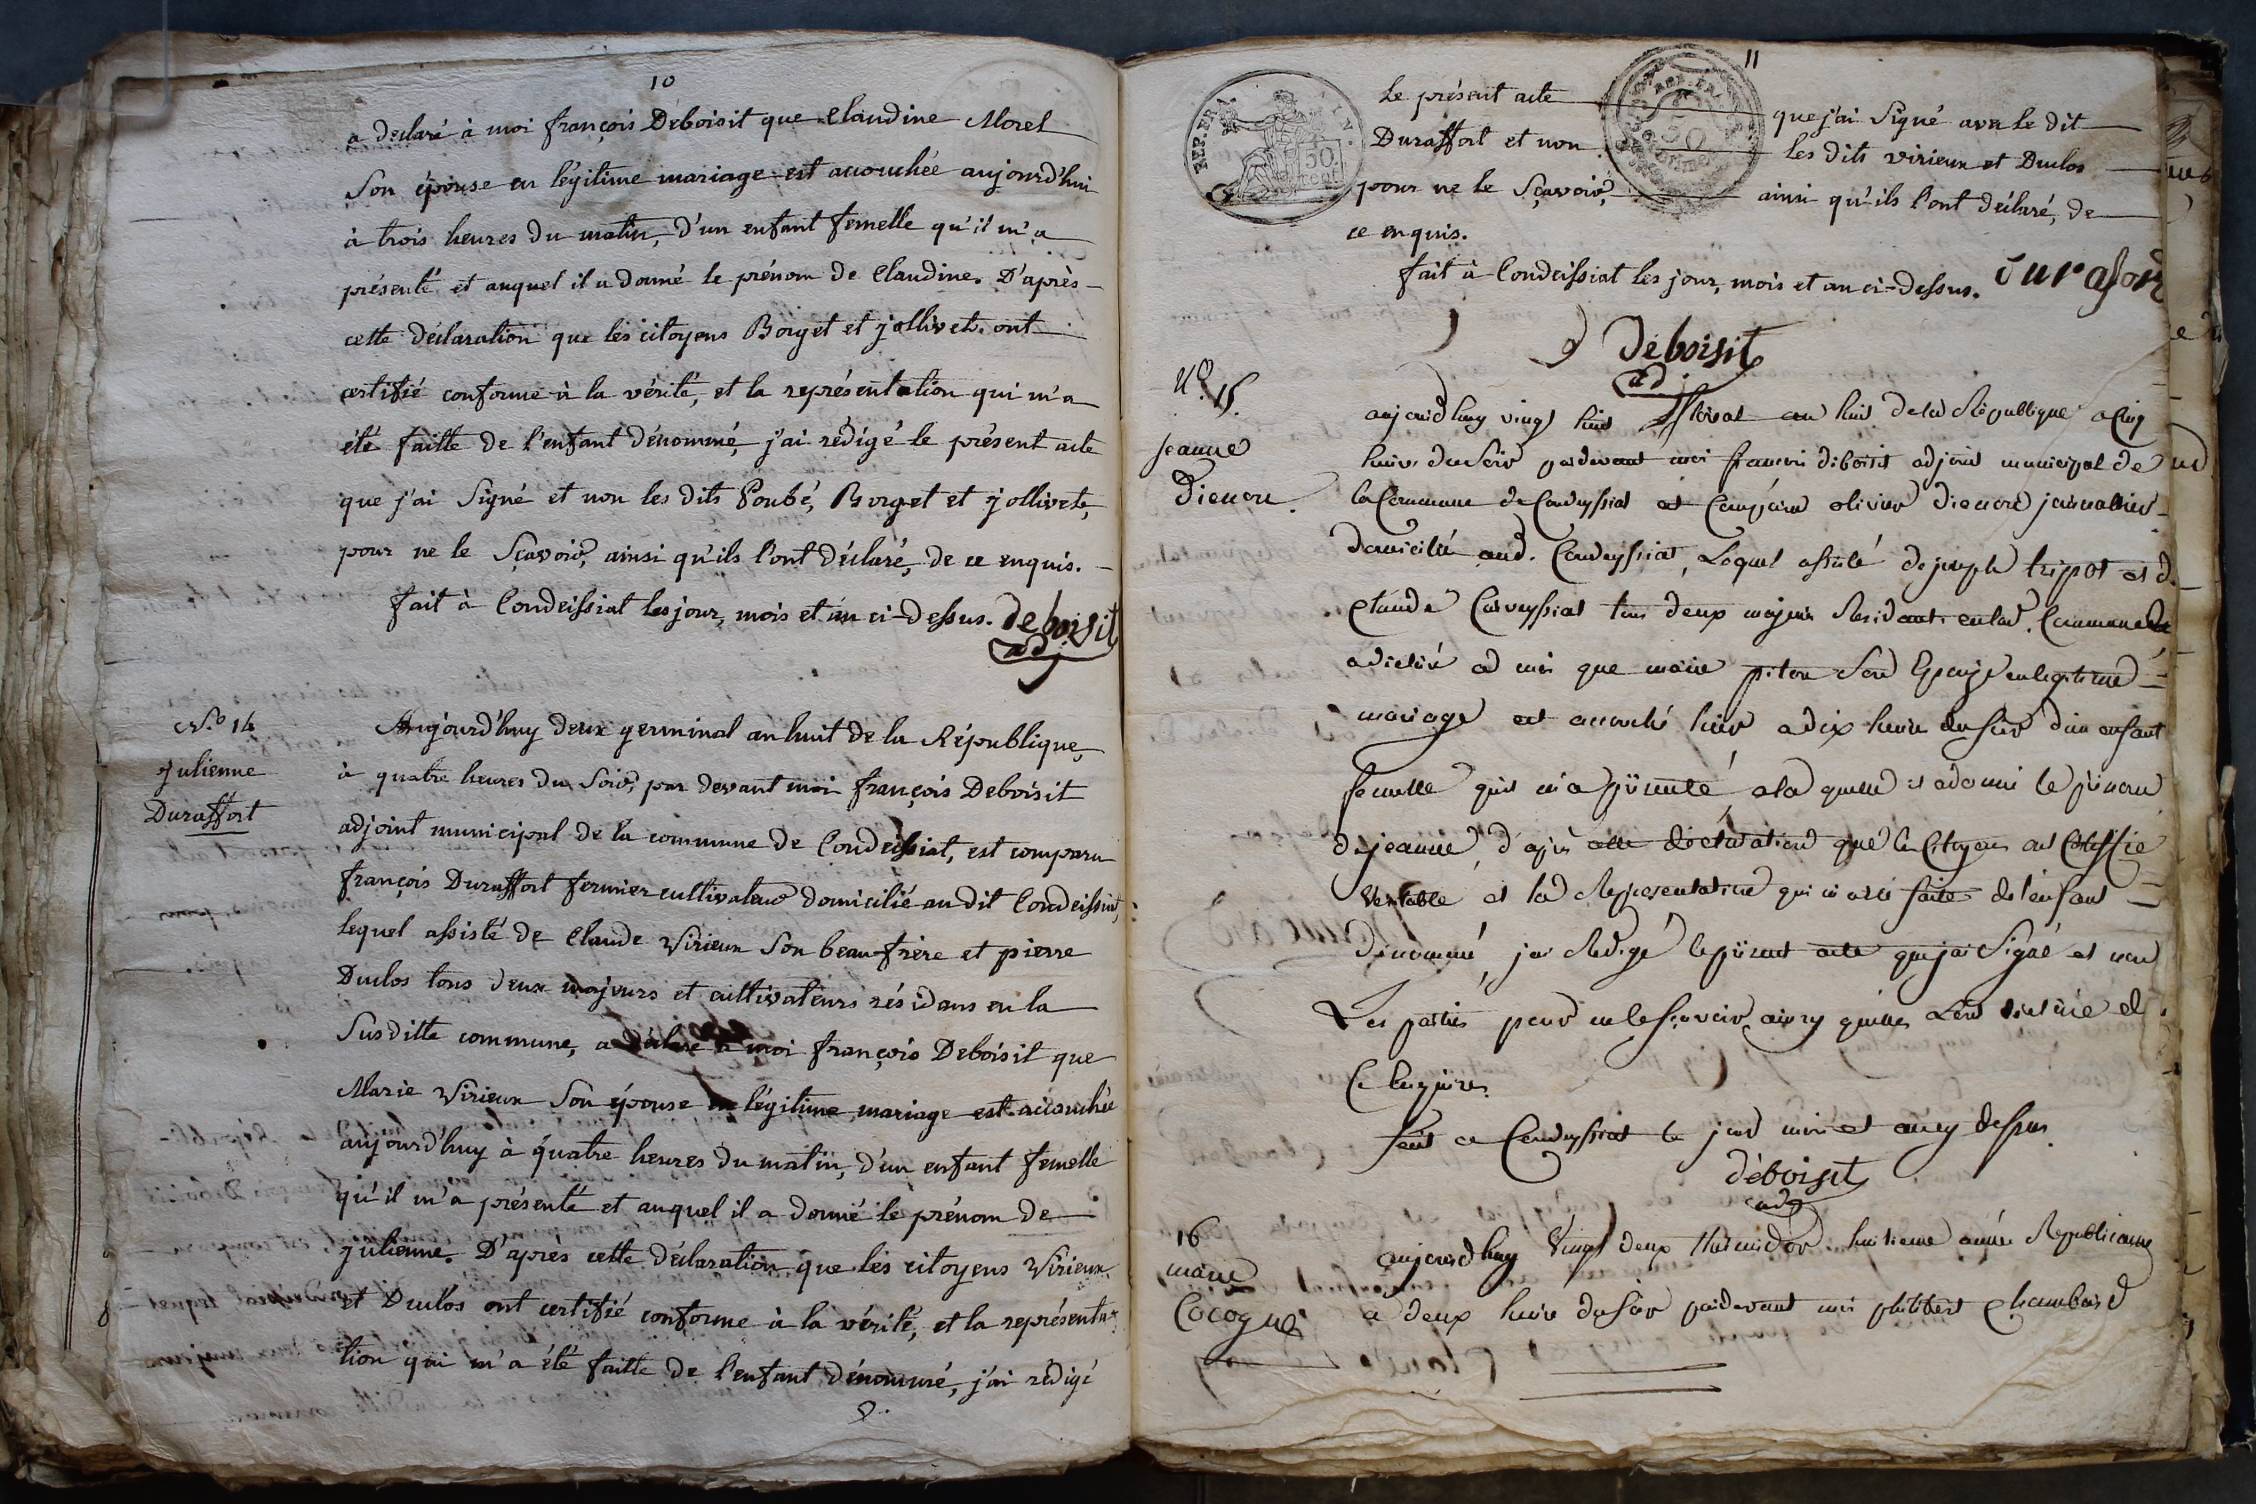 10
a declaré à moi françois Déboisit que Claudine Morel
Son épouse en légitime mariage est accouchée aujourd'hui
à trois heures du matin, d'un enfant femelle qu'il m'a
présenté et auquel il a donné le prénom de Claudine. D'après
cette déclaration que les citoyens Borget et jollivet ont
certifié conforme à la vérité, et la représentation qui m'a
été faitte de l'enfant dénommé, j'ai rédigé le présent acte
que j'ai Signé et non les dits Poubé, Borget et jollivet,
pour ne le Sçavoir, ainsi qu'ils l'ont déclaré, de ce enquis.
fait à Condeissiat les jour, mois et an ci-dessus. deboisit
adj
N.o 14
Julienne
Duraffort
Aujourd'huy deux germinal an huit de la République,
à quatre heures du Soir, par devant moi françois Deboisit
adjoint municipal de la commune de Condeissiat, est comparu
françois Duraffort fermier cultivateur domicilié au dit Condeissiat,
lequel assisté de Claude Virieux Son beau-frère et pierre
Duclos tous deux majeurs et cultivateurs résidans en la
Susditte commune, a déclaré a moi françois Deboisit que
Marie Virieux Son épouse en légitime mariage est accouchée
aujourd'huy à quatre heures du matin, d'un enfant femelle
qu'il m'a présenté et auquel il a donné le prénom de
julienne. D'après cette déclaration que les citoyens Virieux
et Duclos ont certifié conforme à la vérité, et la représenta-
tion qui m'a été faitte de l'enfant dénommé, j'ai rédigé
11
REP. FRA
50.
cent
REP. FRA
50
le présent acte que j'ai Signé avec le dit
Duraffort et non les dits virieux et Duclos
pour ne le Sçavoir, ainsi qu'ils l'ont déclaré, de
ce enquis.
fait à Condeissiat les jour, mois et an ci-dessus. Durafort
deboisit
adj
N.o 15.
jeanne
Dienon.
aujourdhuy vingt huit an huit de la République a cinq
heure du Soir pardevant moi francois deboisit adjoint municipal de
la Commune de Condeyssiat est Comparu olivier journallier
domicilié aud. Condeyssiat, Lequel assisté de joseph tripoz et d.
claude tous deux majeur Residant en lad. Commune
a déclaré a moi que marie piton Son Epouze en legitime
mariage est accouché hier a dix heure du Soir d'un enfant
femelle quil m'a présenté, a la quelle il a donné le prénom
de jeanne, d'après cette déclaration que les Citoyens ont Certiffié
veritable et la Representation qui m'a été faite de l'enfant
dénommé, j'ai Redigé le présent acte que j'ai Signé et non
Les parties pour ne le Sçavoir ainsy quilles Lont déclaré de
Ce Enquises
fait a Condeyssiat le jour mois et an cy dessus.
déboisit
adj
16
marie
Cocogne
aujourdhuy vingt deux thermidor huitieme année Republicaine
a deux heure du Soir pardevant moi philibert Chambard